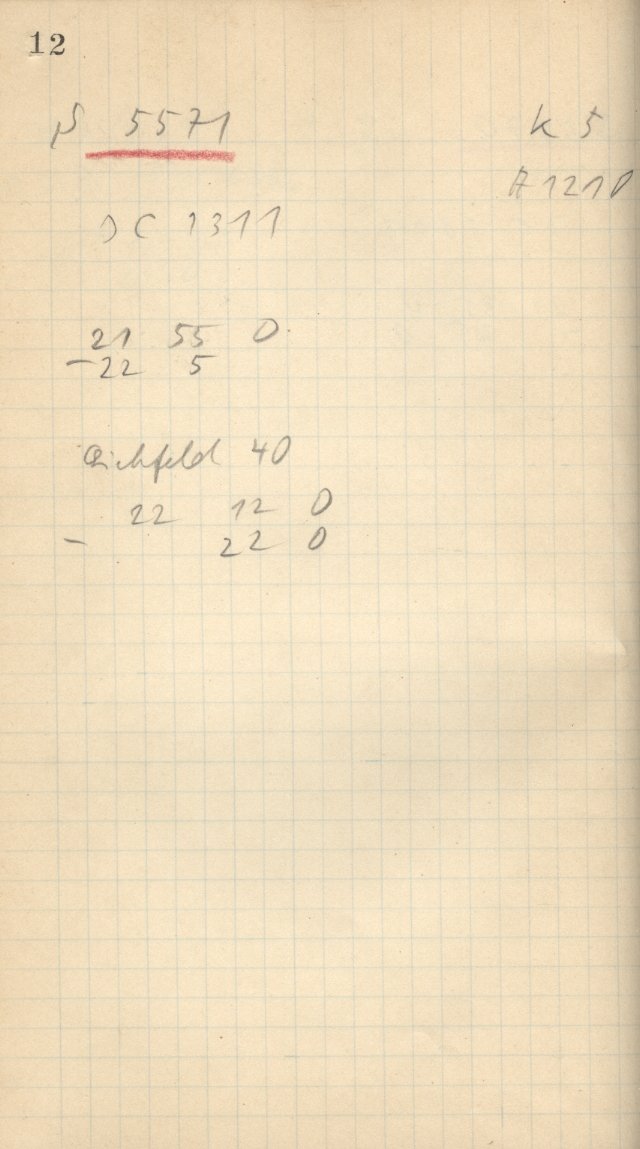 12
P 5571
K 5
A 1210
DC 1311
21 55 0
-22 5
Aichfeld 40
22 12 0
- 22 0